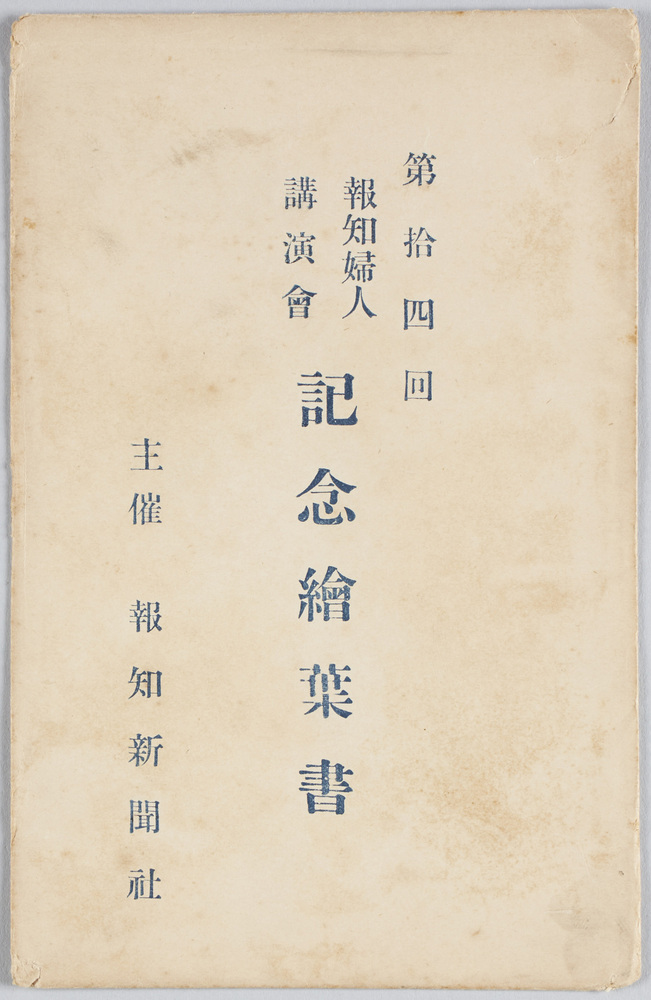 第拾四回
報知婦人
講演會
記念繪葉書
主催 報知新聞社